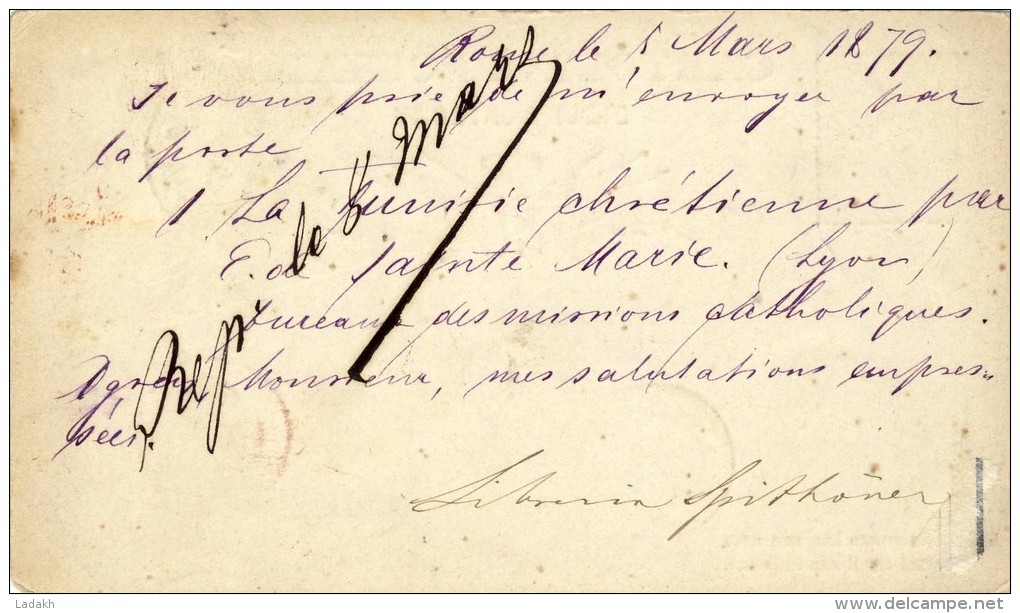 Rome le 5 Mars 1879.
Je vous prie de m'envoyer par
la poste
1 La Tunisie chrétienne par
E. de Sainte Marie. (Lyon)
bureaux des missions catholiques.
Agréez Monsieur, mes salutations empres-
sées.
Libreria Spithöver
Rép. le 8 Mars
Ladakh
www.delcampe.net